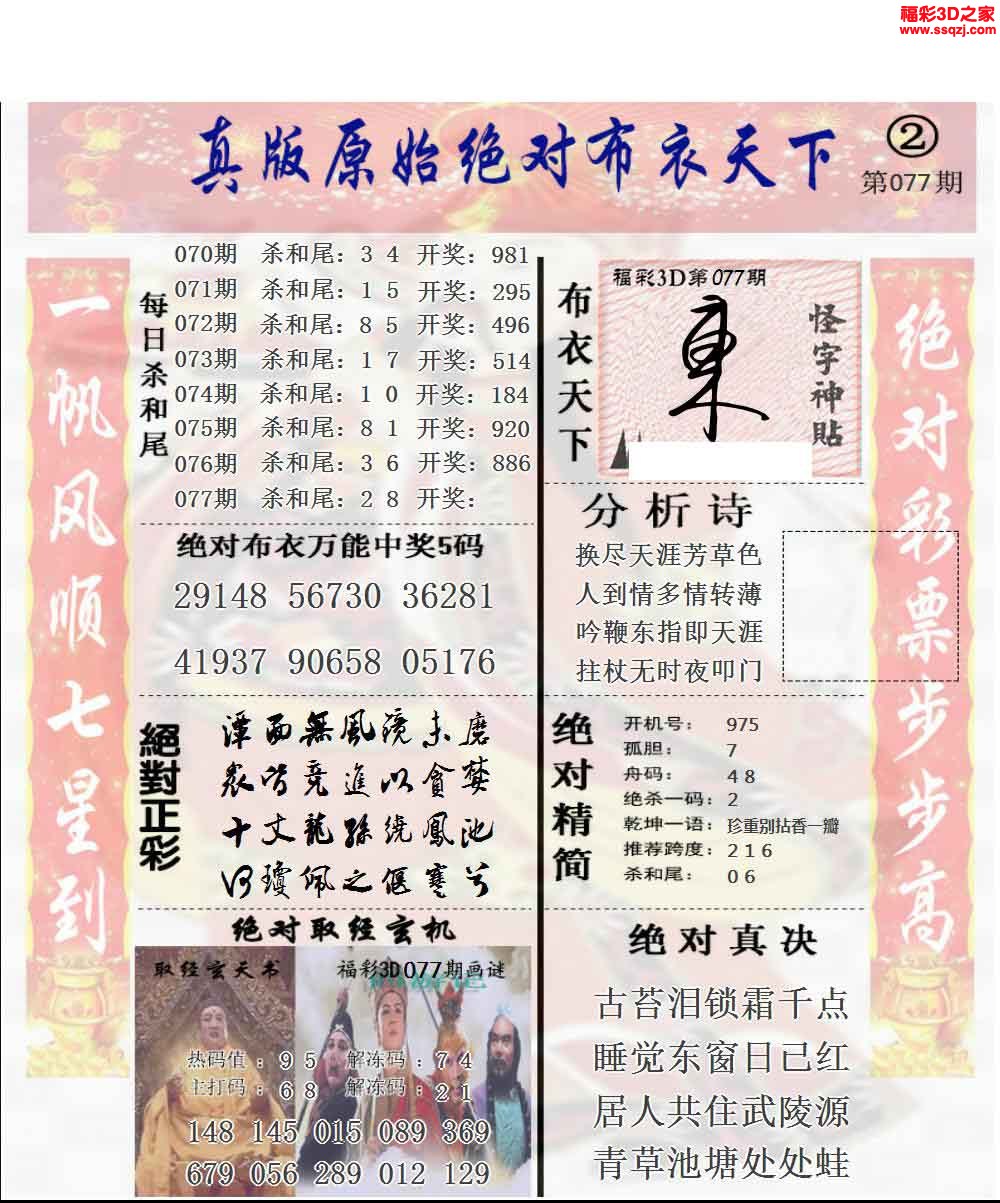 福彩3D之家
www.ssqzj.com
真版原始绝对布衣天下
②
第077期
一帆风顺七星到
每日杀和尾
070期 杀和尾：3 4 开奖：981
071期 杀和尾：1 5 开奖：295
072期 杀和尾：8 5 开奖：496
073期 杀和尾：1 7 开奖：514
074期 杀和尾：1 0 开奖：184
075期 杀和尾：8 1 开奖：920
076期 杀和尾：3 6 开奖：886
077期 杀和尾：2 8 开奖：
绝对布衣万能中奖5码
29148 56730 36281
41937 90658 05176
絕對正彩
潭面無風鏡未磨
眾皆競進以貪婪
十丈龍孫繞鳳池
何瓊佩之偃蹇兮
绝对取经玄机
取经玄天书
福彩3D077期画谜
热码值：9 5 解冻码：7 4
主打码：6 8 解冻码：2 1
148 145 015 089 369
679 056 289 012 129
布衣天下
福彩3D第077期
怪字神貼
分析诗
换尽天涯芳草色
人到情多情转薄
吟鞭东指即天涯
拄杖无时夜叩门
绝对精简
开机号：975
孤胆：7
舟码：4 8
绝杀一码：2
乾坤一语：珍重别拈香一瓣
推荐跨度：2 1 6
杀和尾：0 6
绝对真决
古苔泪锁霜千点
睡觉东窗日已红
居人共住武陵源
青草池塘处处蛙
绝对彩票步步高